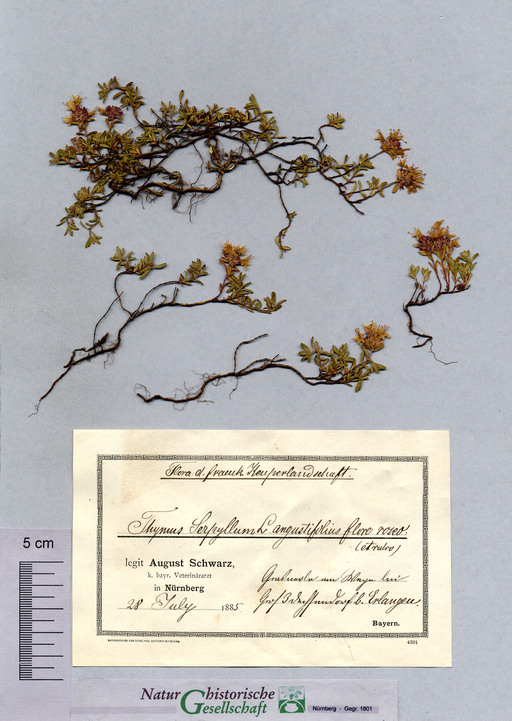 Flora d. fraenk. Keuperlandschaft.
Thymus Serpyllum L angustifolius flore roseo.
(et rubro)
legit August Schwarz,
k. bayr. Veterinärarzt
in Nürnberg
28 July 1885
am Wege bei
b. Erlangen.
Bayern.
4391
5 cm
Naturhistorische
Gesellschaft
Nürnberg - Gegr. 1801